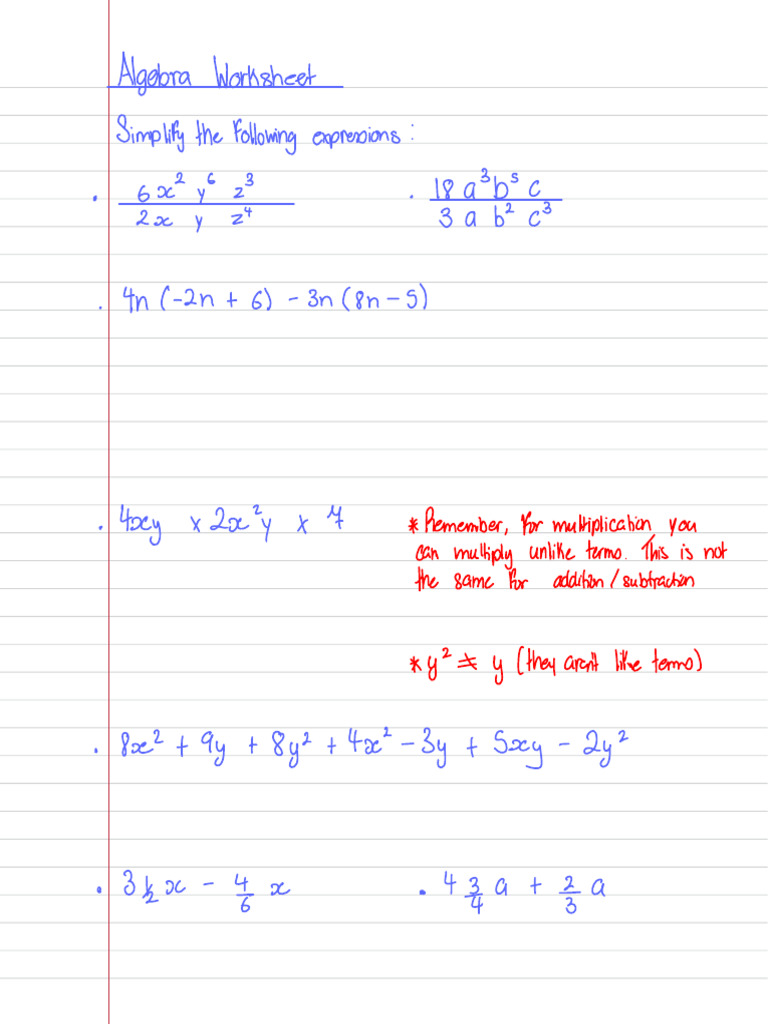 Algebra Worksheet
Simplify the following expressions :
• 6x² y⁶ z³ / 2x y z⁴ • 18 a³ b⁵ c / 3 a b² c³
• 4n (-2n + 6) - 3n (8n - 5)
• 4xy x 2x²y x 7
* Remember, for multiplication you
can multiply unlike terms. This is not
the same for addition / subtraction
* y² ≠ y (they aren't like terms)
• 8x² + 9y + 8y² + 4x² - 3y + 5xy - 2y²
• 3 1/2 x - 4/6 x • 4 3/4 a + 2/3 a